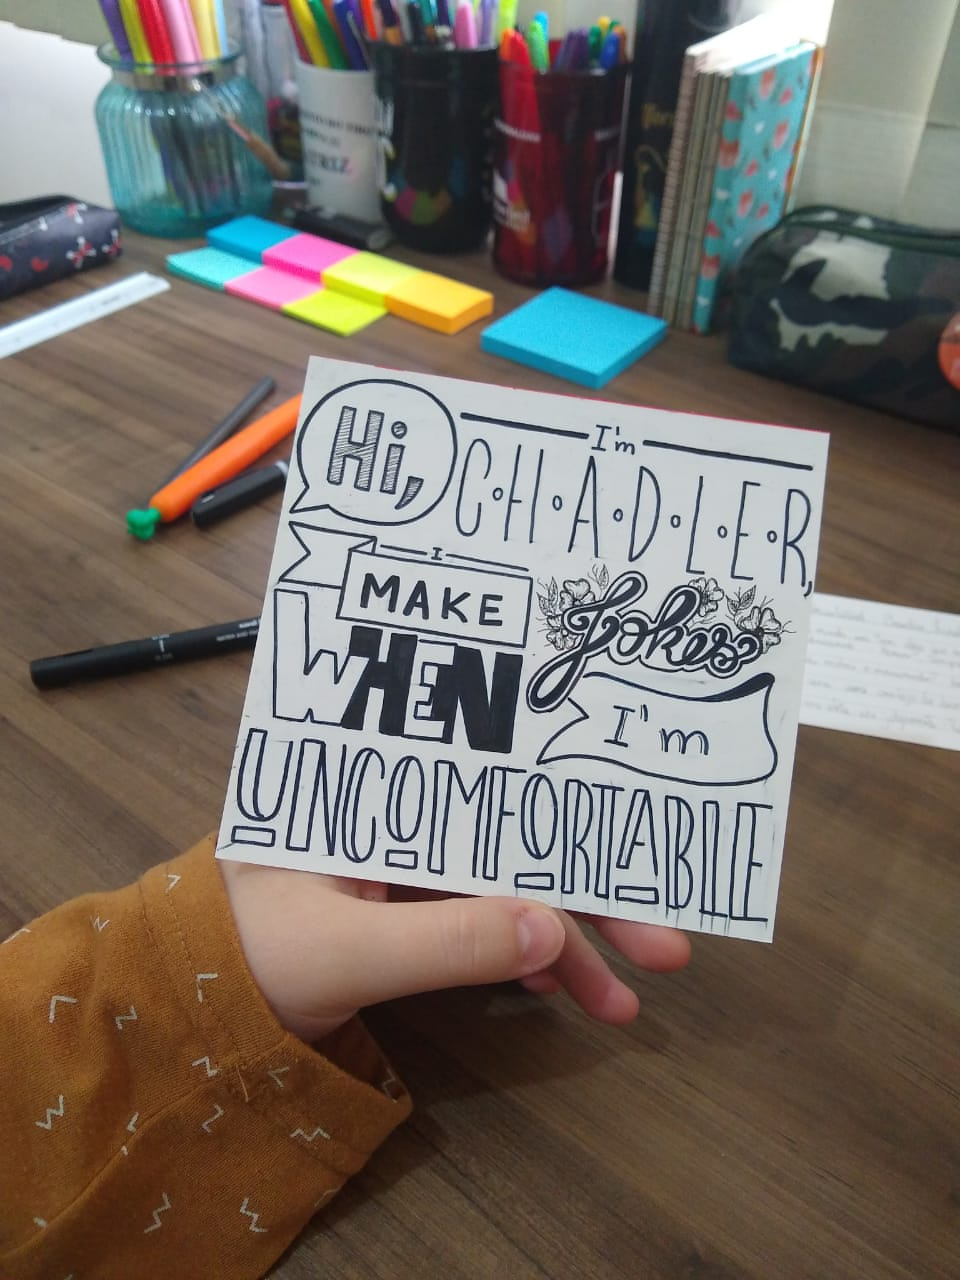 Hi,
I'm
C·H·A·D·L·E·R,
I
MAKE
Jokes
WHEN
I'm
UNCOMFORTABLE